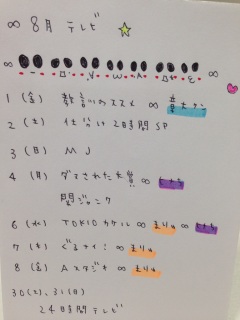 ∞ 8月 テレビ ☆
1 (金) 教訓のススメ ∞
2 (土) 仕分け 2時間SP
3 (日) MJ
4 (月) ダマされた大賞 ∞
闇ジニック
6 (水) TOKIOカケル ∞ まりゅ ∞
7 (木) ぐるナイ ∞ まりゅ
8 (金) Aスタジオ ∞ まりゅ
30(土), 31(日)
24時間テレビ